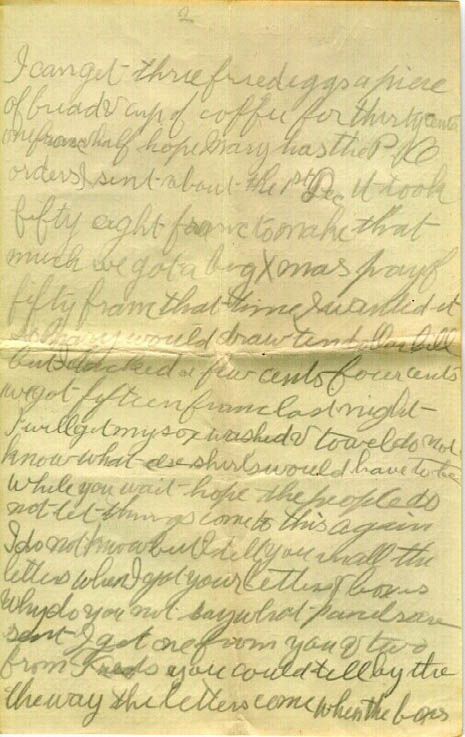 2
I can get three fried eggs a piece
of bread & cup of coffee for thirty cents
one franc half hope Mary has the P O
orders I sent about the 1st Dec it took
fifty eight franc to make that
much we got a big Xmas pay of
fifty franc that time I wanted it
so Mary would draw ten dollar bill
but I lacked a few cents four cents
we got fifteen franc last night
I will get my sox washed & towel do not
know what else shirts would have to be
while you wait hope the people do
not let things come to this again
I do not know but I tell you in all the
letters when I got your letters & boxes
why do you not say what and are
sent I got one from you & two
from Freds you could tell by the
the way the letters come when the boxes